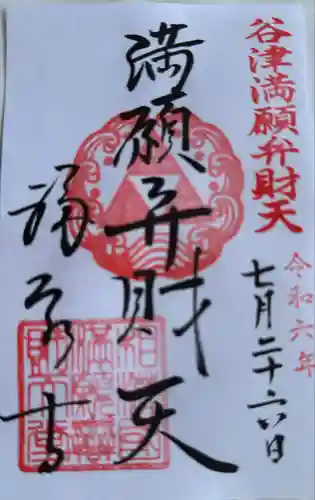 谷津満願弁財天
令和六年
七月二十六日
満願弁財天
福泉寺